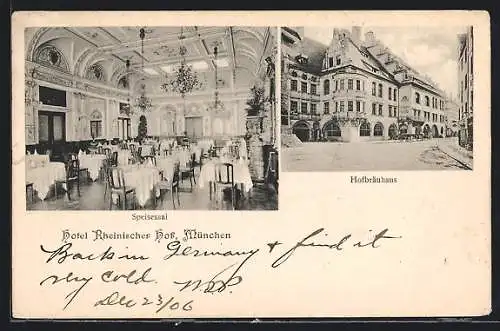 Speisesaal
Hofbräuhaus
Hotel Rheinischer Hof, München
Back in Germany + find it
very cold.
Dec 23/06